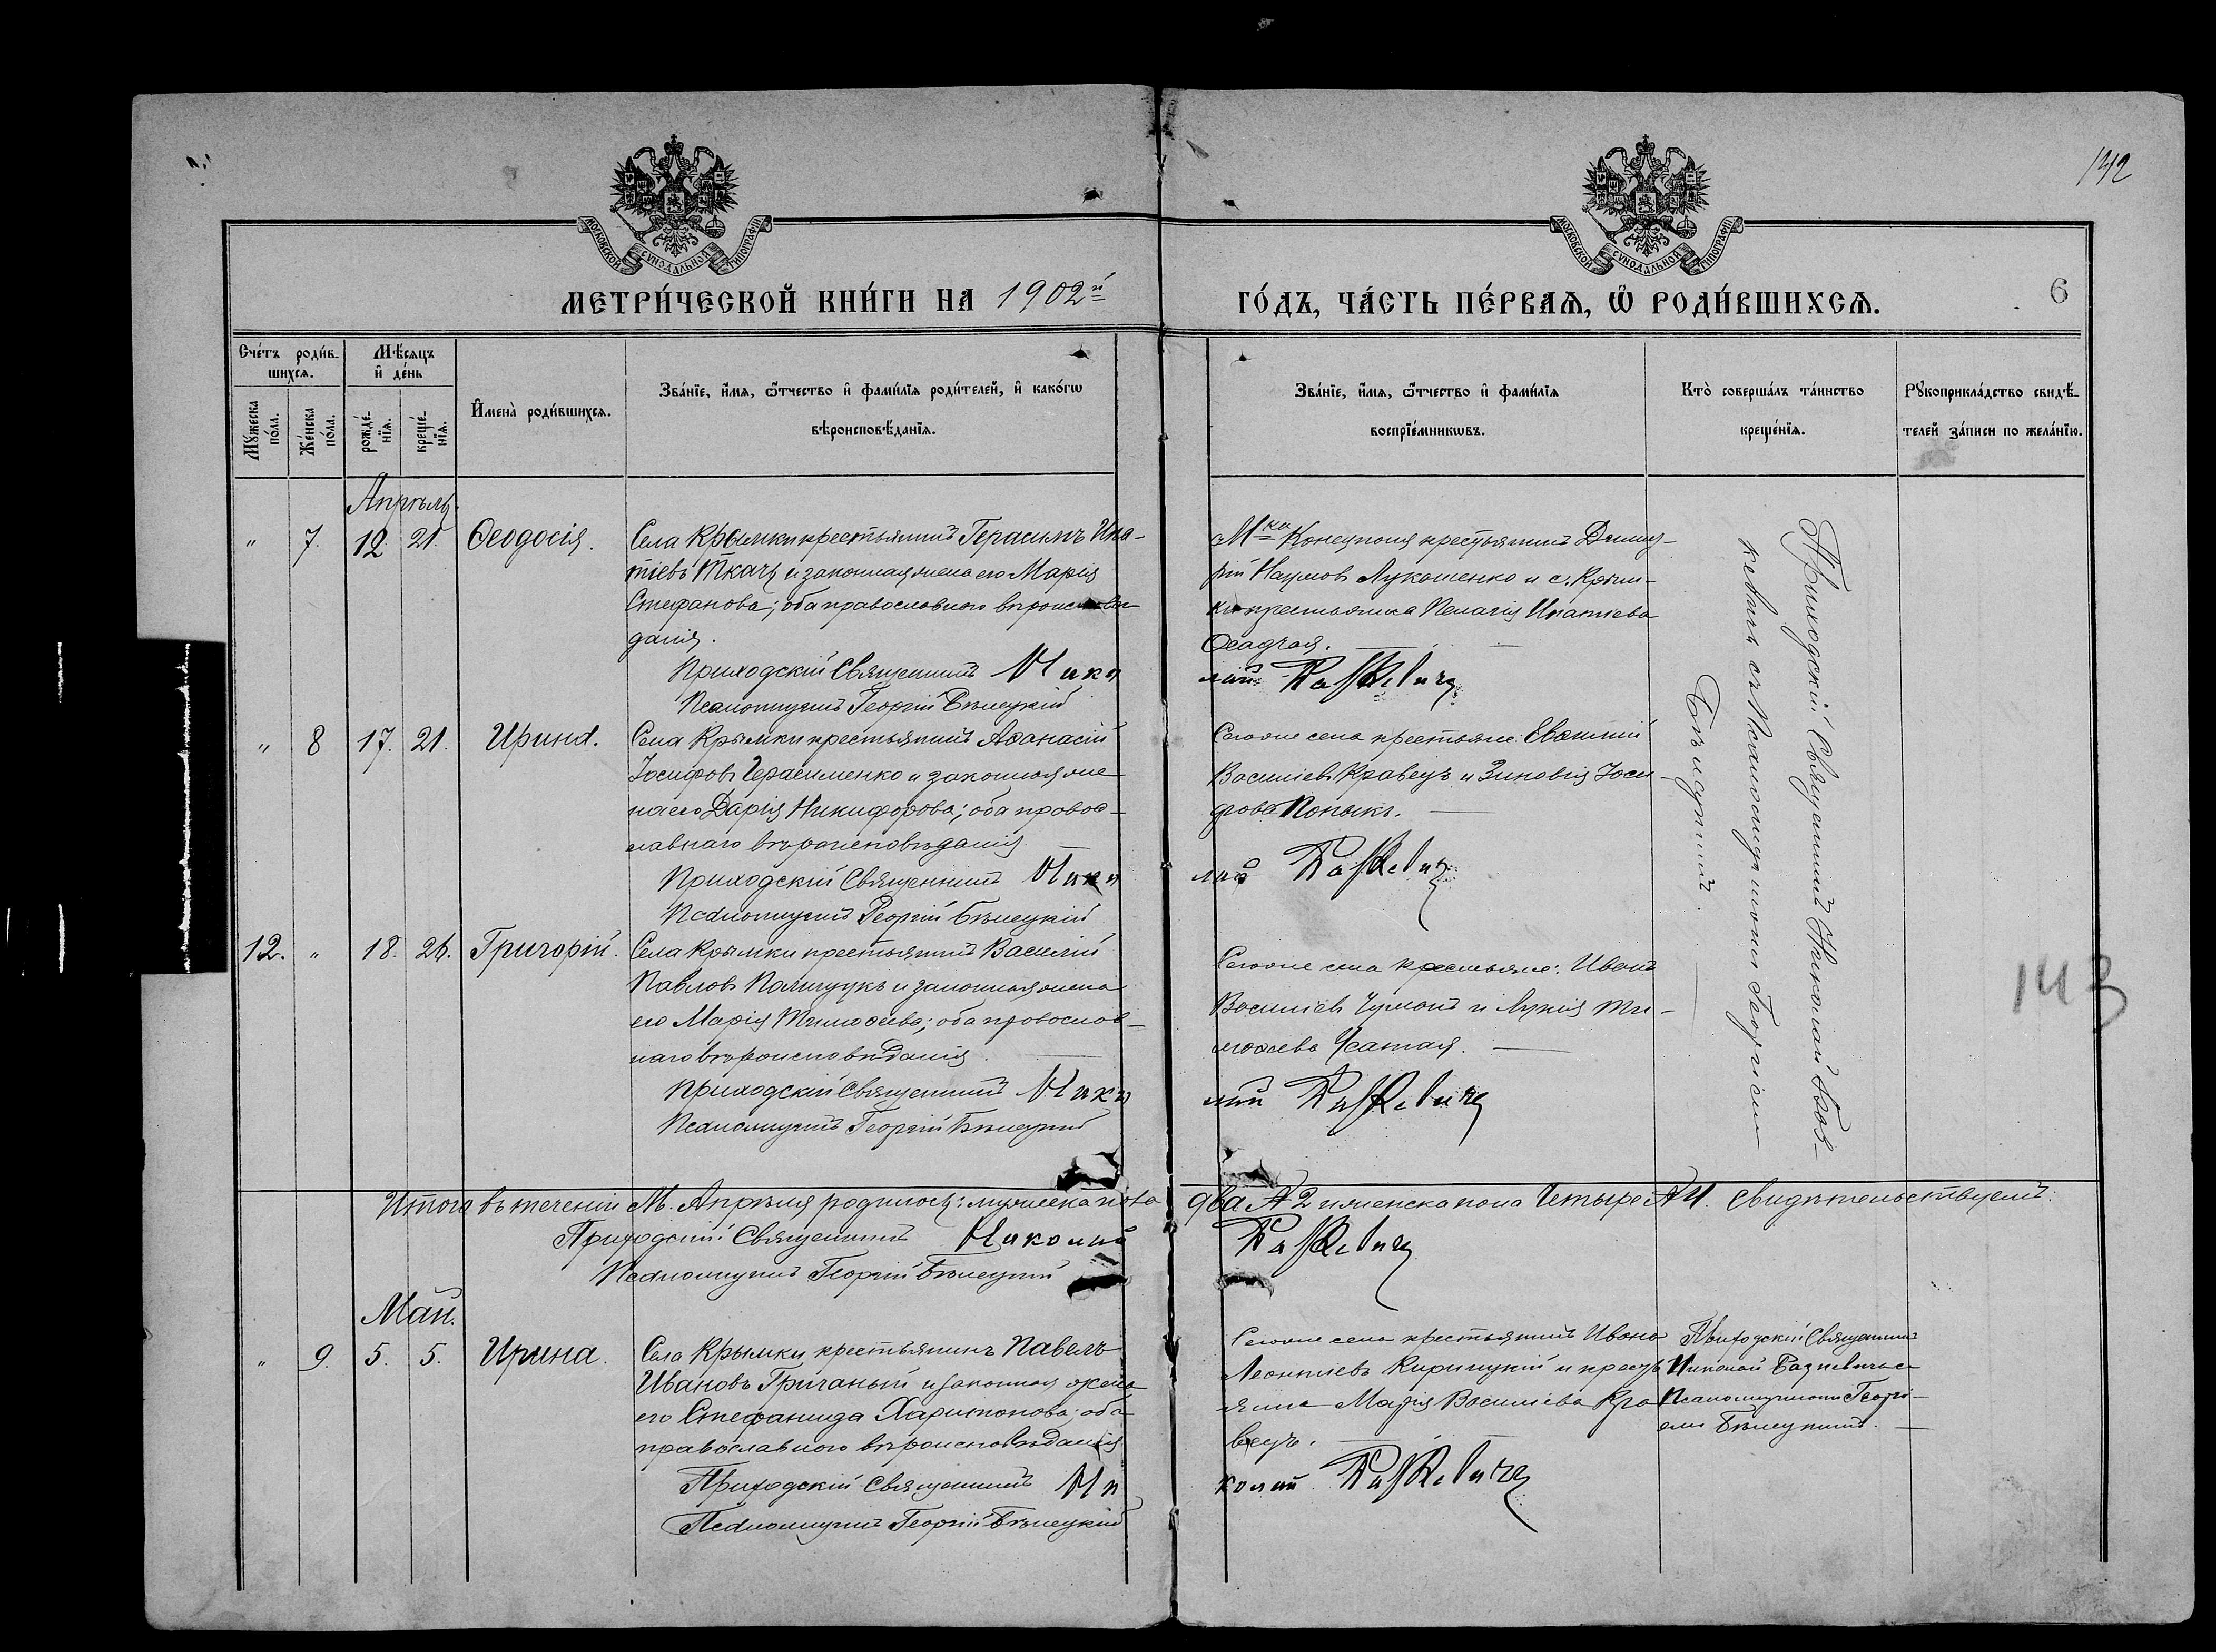 142
МОСКОВСКОЙ СѴНОДАЛЬНОЙ ТИПОГРАФІИ
МОСКОВСКОЙ СѴНОДАЛЬНОЙ ТИПОГРАФІИ
МЕТРИ́ЧЕСКОЙ КНИ́ГИ НА 1902й
ГО́ДЪ, ЧА́СТЬ ПЕ́РВАѦ, Ѡ҆ РОДИ́ВШИХСѦ.
6
Сче́тъ роди́в-
шихсѧ.
Мѣ́сяцъ
и҆ де́нь
Мꙋ́жеска
по́ла.
Же́нска
по́ла.
рожде́-
нїѧ.
креще́-
нїѧ.
И҆мена̀ роди́вшихсѧ.
Зва́нїе, и҆́мѧ, ѻ҆́тчество и҆ фами́лїѧ роди́телей, и҆ како́гѡ
вѣроисповѣ́данїѧ.
Зва́нїе, и҆́мѧ, ѻ҆́тчество и҆ фами́лїѧ
воспрїе́мникѡвъ.
Кто̀ соверша́лъ та́инство
креще́нїѧ.
Рꙋкоприкла́дство свидѣ́-
телей за́писи по жела́нїю.
Апрѣль
" 7. 12 21. Ѳеодосія.
Села Крымки крестьянинъ Герасимъ Ипа-
тіевъ Ткачъ и законная жена его Марія
Стефанова; оба православнаго вѣроисповѣ
данія.
Приходскій Священникъ Нико
Псаломщикъ Георгій Бѣлецкій
Мка Конецполя крестьянинъ Дими-
рій Наумов Лукашенко и с. Крым-
ки крестьянка Пелагія Ипатіева
Осадчая.
лай
" 8 17. 21. Ирина.
Села Крымки крестьянинъ Аѳанасій
Іосифовъ Герасименко и законная же
на его Дарія Никифорова; оба правос-
лавнаго вѣроисповѣданія
Приходскій Священникъ Нико
Псаломщикъ Георгій Бѣлецкій
Сегоже села крестьяне: Евѳимій
Василіевъ Кравецъ и Зиновія Іоси-
фова
лай
12. " 18. 26. Григорій.
Села Крымки крестьянинъ Василій
Павловъ Полищукъ и законная жена
его Марія Тимоѳеева; оба православ-
наго вѣроисповѣданія.
Приходскій Священникъ Нико
Псаломщикъ Георгій Бѣлецкій
Сегоже села крестьяне: Иванъ
Василіевъ и Лукія Ти-
моѳеева
лай
Приходскій Священникъ Николай Баз-
кевичъ съ Псаломщикомъ Георгіем
Бѣлецкимъ.
143
Итого въ теченіи М. Апрѣля родилось: мужеска пола два 2 и женска пола четыре 4. Свидѣтельствуемъ:
Приходскій Священникъ Николай
Псаломщикъ Георгій Бѣлецкій
Май.
" 9. 5. 5. Ирина.
Села Крымки крестьянинъ Павелъ
Ивановъ Гричаный и законная жена
его Стефанида Харитонова; оба
православнаго вѣроисповѣданія
Приходскій Священникъ Ни
Псаломщикъ Георгій Бѣлецкій
Сегоже села крестьянинъ Иванъ
Леонтіевъ и кресть
янка Марія Василіева Кра
вецъ.
колай
Приходскій Священникъ
Николай Базкевичъ с
Псаломщикомъ Георгі-
емъ Бѣлецкимъ.